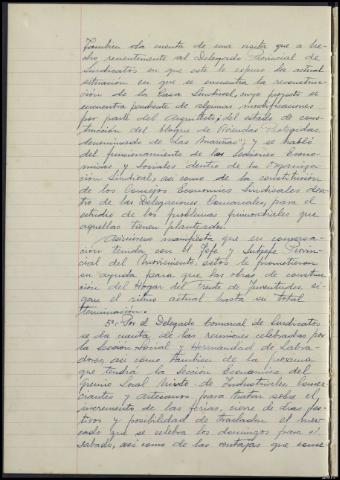 Tambien da cuenta de una visita que a he-
cho recientemente al Delegado Provincial de
Sindicatos en que este le expuso la actual
situacion en que se encuentra la reconstruc-
ción de la Casa Sindical, cuyo proyecto se
encuentra pendiente de algunas modificaciones
por parte del Arquitecto; del estado de cons-
trucción del bloque de Viviendas protegidas
denominado de "Las Mariñas"; y se habló
del funcionamiento de las Secciones Econo-
micas y Sociales dentro de la Organiza-
ción Sindical, así como de la constitución
de los Consejos Economicos Sindicales den-
tro de las Delegaciones Comarcales, para el
estudio de los problemas primordiales que
aquellas tienen planteados.
Asimismo manifiesta que en conversa-
ción tenida con el Jefe y Subjefe Provin-
cial del Movimiento, estos le prometieron
su ayuda para que las obras de construc-
ción del Hogar del Frente de Juventudes, si-
gan el ritmo actual hasta su total
terminación.
5º.- Por el Delegado Comarcal de Sindicatos
se da cuenta de las reuniones celebradas por
la Sección Social y Hermandad de Labra-
dores, así como tambien de la proxima
que tendrá la Sección Economica del
Gremio Local Mixto de Industriales, Comer-
ciantes y artesanos, para tratar sobre el
incremento de las ferias, cierre de dias fes-
tivos y posibilidad de trasladar el mer-
cado que se celebra los domingos para el
sabado, así como de las ventajas que